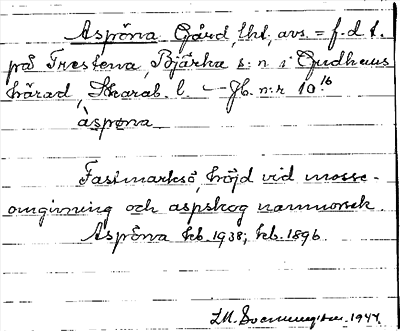 Aspöna Gård, lht, avs. = f. d. t.
på Trestena, Bjärka s:n i Gudhems
härad, Skarab. l. — Jb. n:r 10.16
àspöna
Fastmarksö, höjd vid mosse-
omgivning och aspskog namnorsak.
Aspöna kb. 1938; kb. 1896.
1944